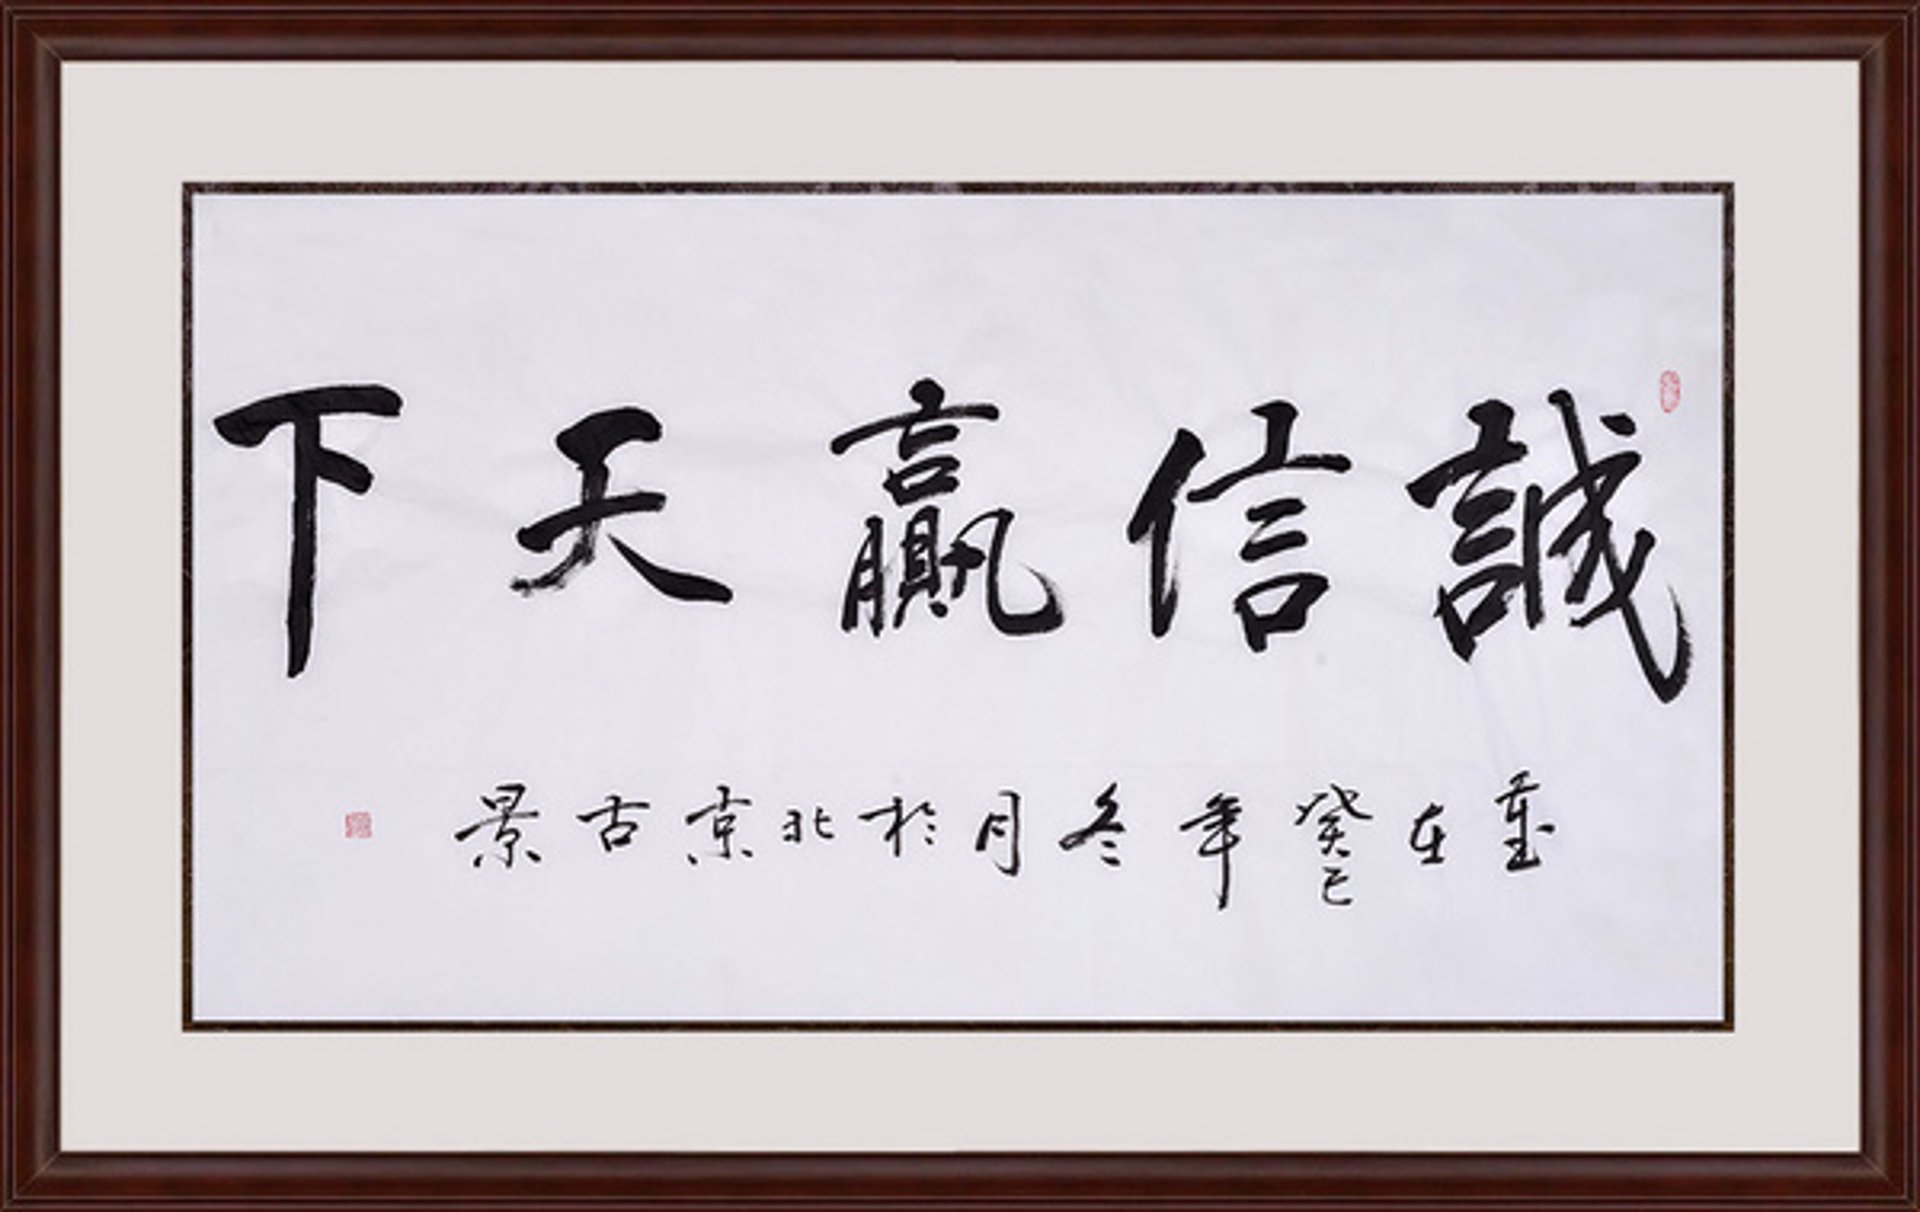 誠信贏天下
歲在癸巳年冬月於北京古景